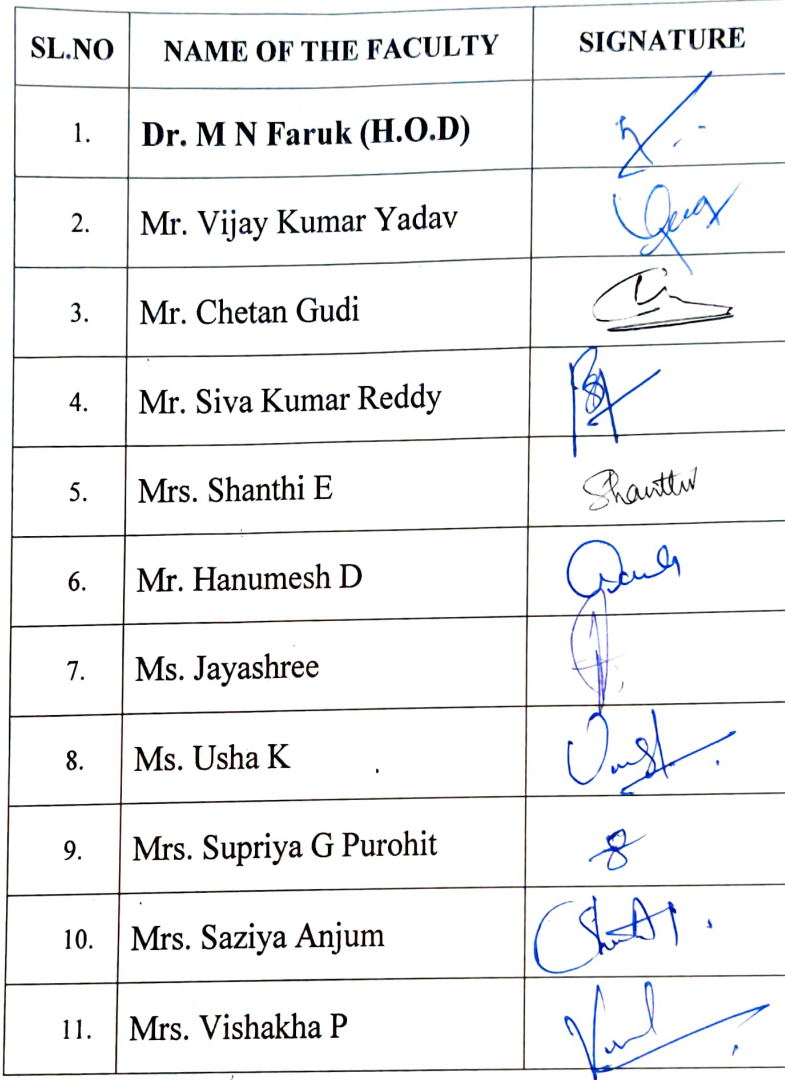 SL.NO NAME OF THE FACULTY SIGNATURE
1. Dr. M N Faruk (H.O.D)
2. Mr. Vijay Kumar Yadav
3. Mr. Chetan Gudi
4. Mr. Siva Kumar Reddy
5. Mrs. Shanthi E Shanthi
6. Mr. Hanumesh D
7. Ms. Jayashree
8. Ms. Usha K
9. Mrs. Supriya G Purohit
10. Mrs. Saziya Anjum
11. Mrs. Vishakha P